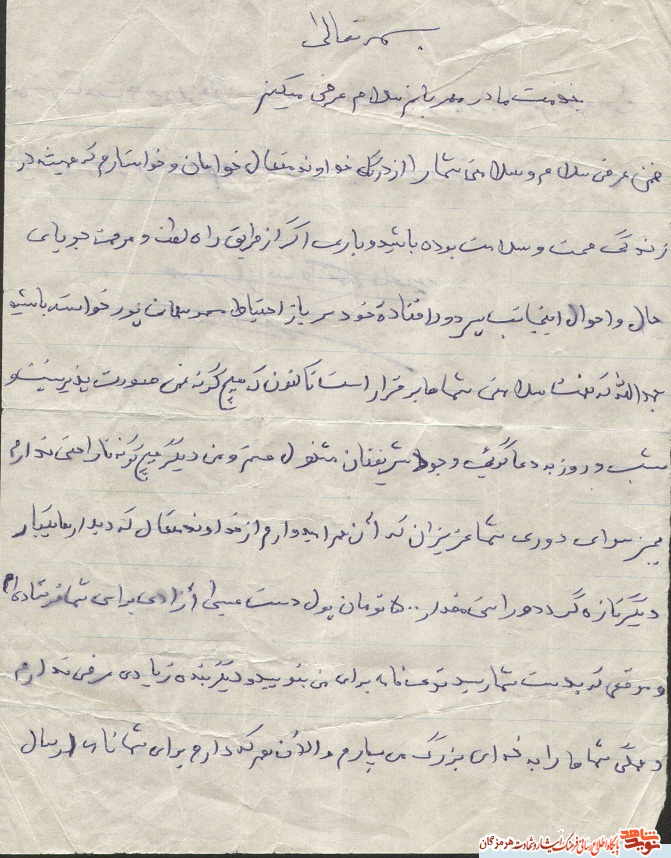 بسمه تعالی
بخدمت مادر مهربانم سلام عرض میکنم
ضمن عرض سلام و سلامتی شما را از درگاه خداوند متعال خواهان و خواستارم که همیشه در
زندگی صحت و سلامت بوده باشید و باری اگر از طریق راه لطف و مرحمت جویای
حال و احوال اینجانب پسر دور افتادهٔ خود سرباز احتیاط پور خواسته باشید
بحمدالله که نعمت سلامتی شماها برقرار است تاکنون که هیچ گونه غمی صورت پذیر نیست و
شب و روز به دعا گوئی وجود شریفتان مشغول هستم و من دیگر هیچ گونه ناراحتی ندارم
بجز سوای دوری شما عزیزان که آن هم امیدوارم از خداوند متعال که دیدارها یکبار
دیگر تازه گردد و راستی مقدار ۵۰۰ تومان پول دست آزادی برای شما فرستاده‌ام
و موقعی که بدست شما رسید توی نامه برای من بنویسید و دیگر بنده زیادی عرضی ندارم
و همگی شماها را به خدای بزرگ می سپارم و الآن هم که دارم برای شما نامه ارسال
نوید شاهد پایگاه اطلاع رسانی فرهنگ ایثار و شهادت هرمزگان